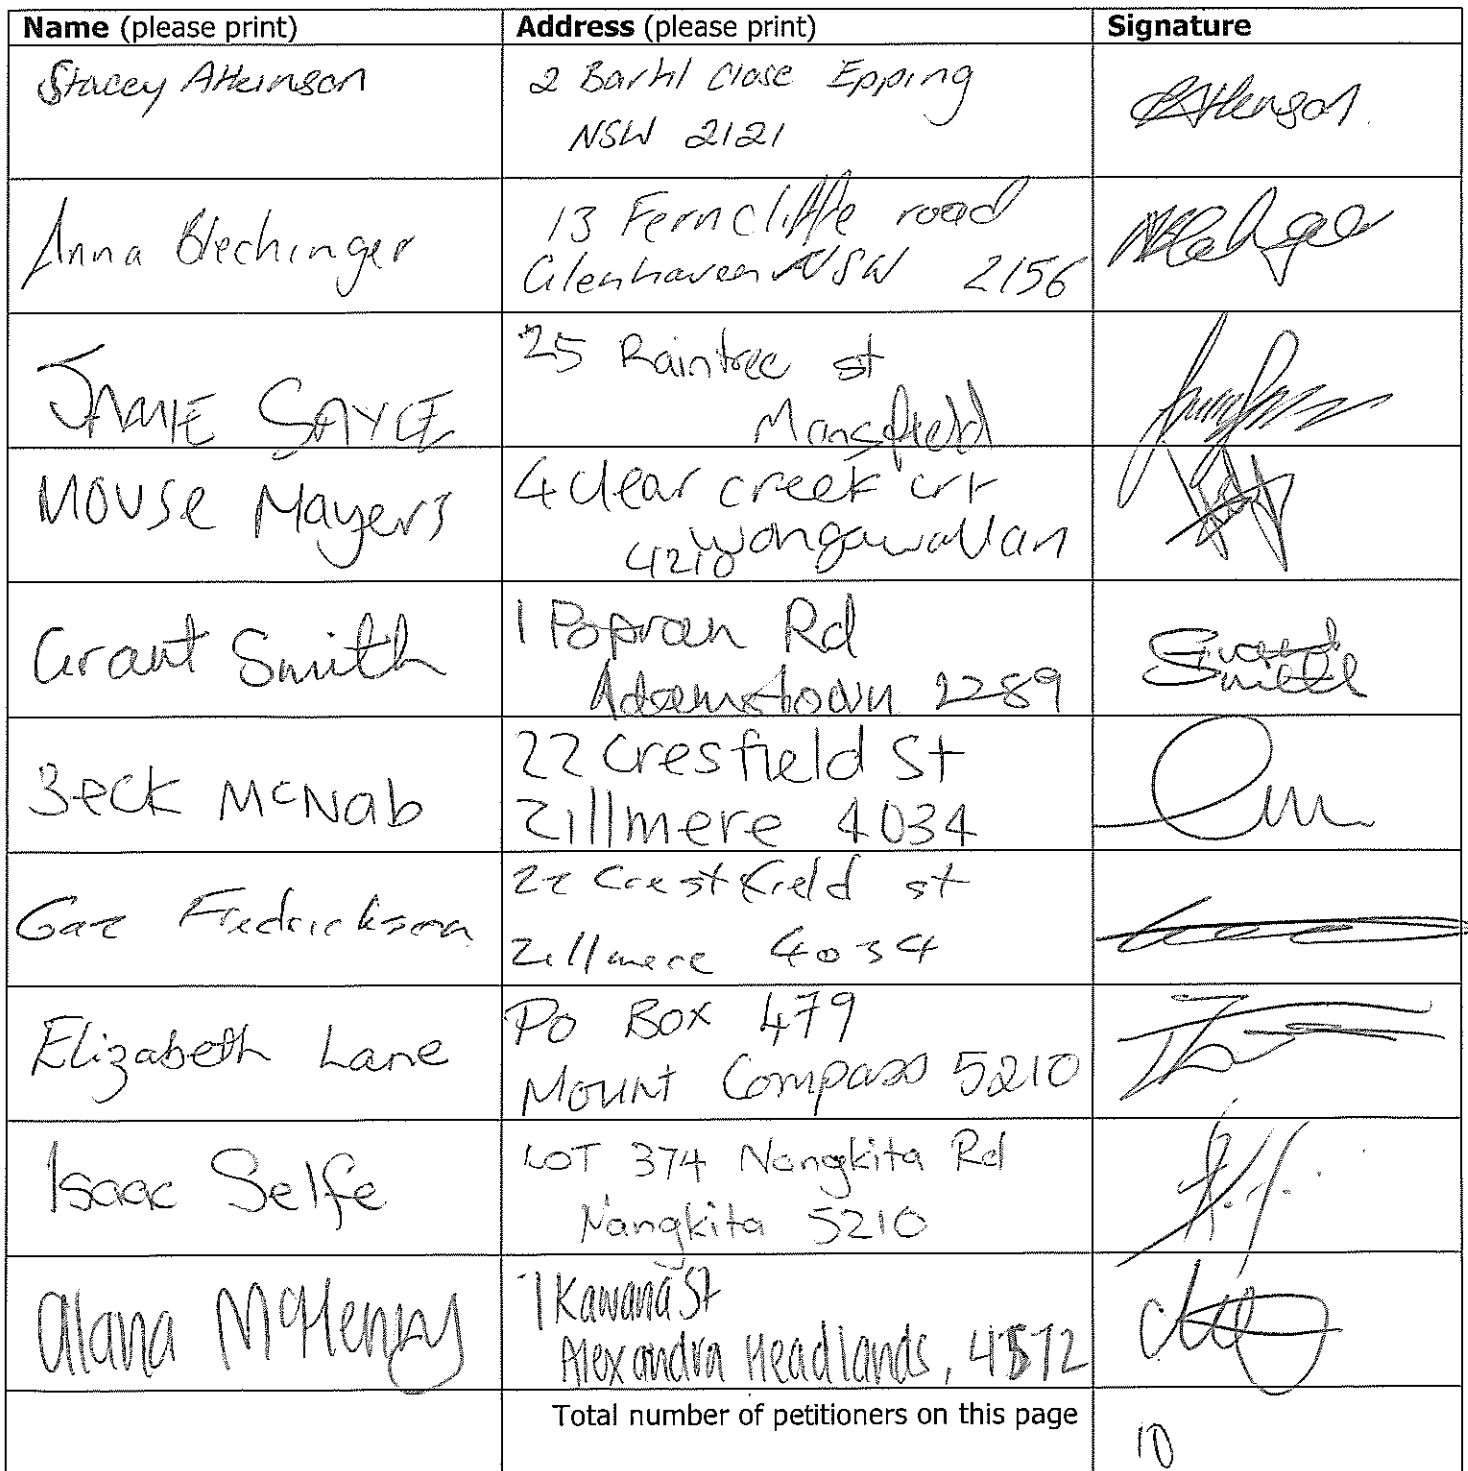 Name (please print) Address (please print) Signature
Stacey Atkinson
2 Barhl Close Epping
NSW 2121
Atkinson.
Anna Blechinger
13 Ferncliffe road
Glenhaven NSW 2156
JAMIE SAYCE
25 Raintree st
Mansfield
Mouse Mayers
4 Clear creek crt
Wongawallan
4210
Grant Smith
1 Popran Rd
Adamstown 2289
Grant
Smith
Beck McNab
22 Cresfield St
Zillmere 4034
Gaz Fredrickson
22 Crestfield st
Zillmere 4034
Elizabeth Lane
PO Box 479
Mount Compass 5210
Isaac Selfe
LOT 374 Nangkita Rd
Nangkita 5210
Alana McHenry
1 Kawana St
Alexandra Headlands, 4572
Total number of petitioners on this page
10